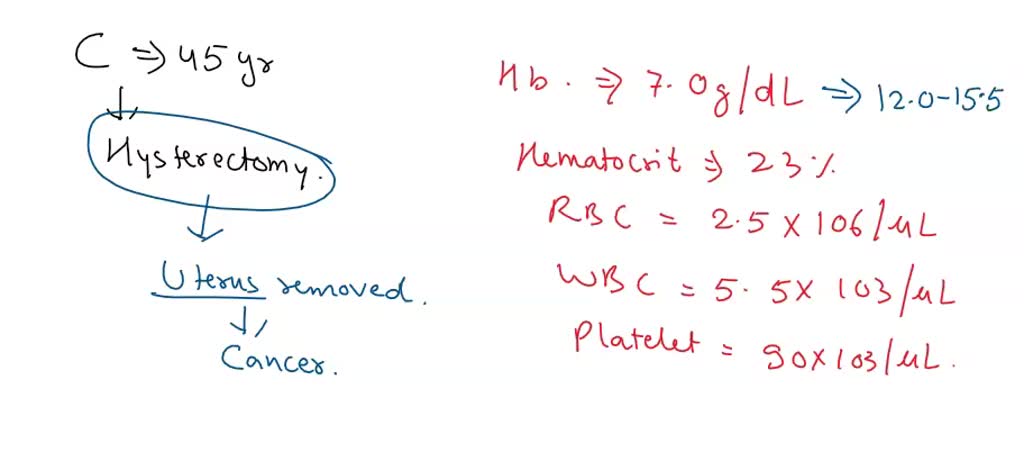 C ⇒ 45 yr
Hysterectomy.
Uterus removed.
Cancer.
Hb. ⇒ 7.0g/dL ⇒ 12.0-15.5
Hematocrit ⇒ 23%
RBC = 2.5 X 106/µL
WBC = 5.5X 103/µL
Platelet = 90X103/µL.